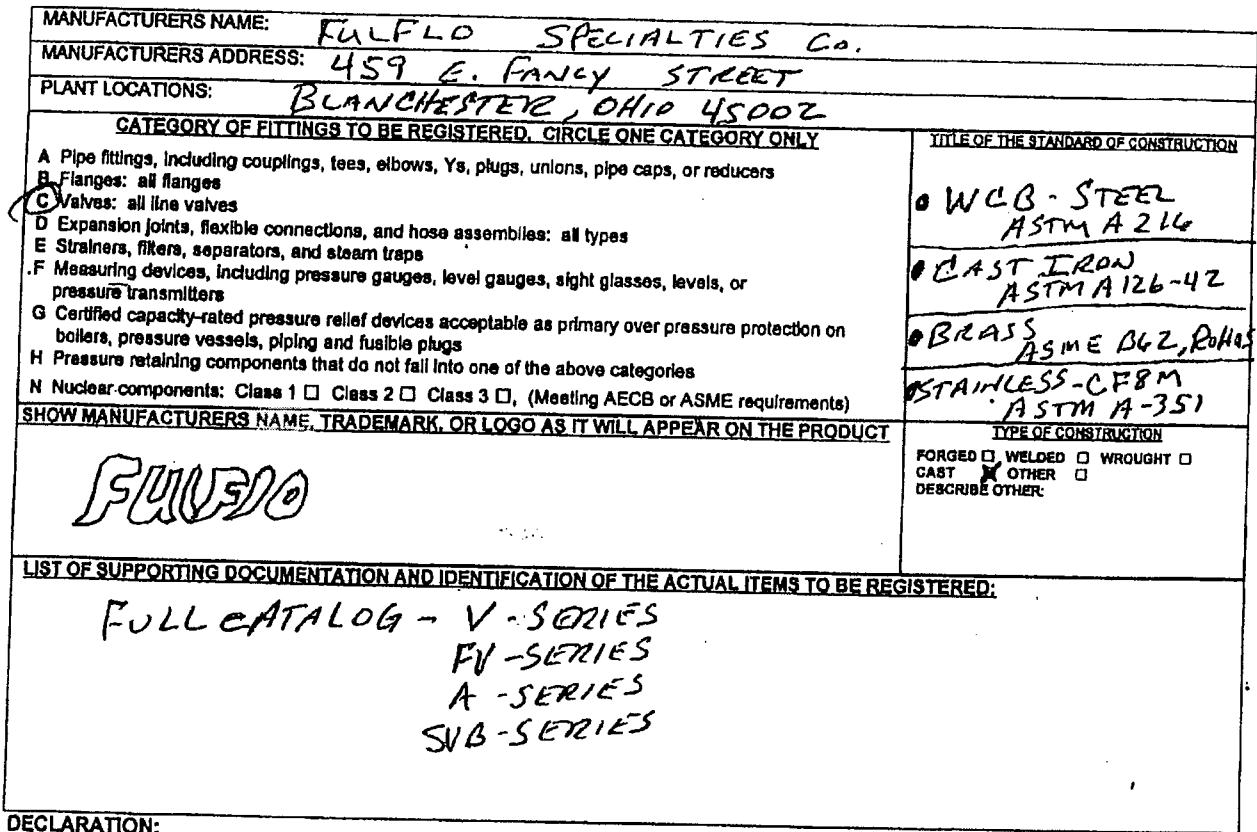 MANUFACTURERS NAME: FULFLO SPECIALTIES Co.
MANUFACTURERS ADDRESS: 459 E. FANCY STREET
PLANT LOCATIONS: BLANCHESTER, OHIO 45002
CATEGORY OF FITTINGS TO BE REGISTERED. CIRCLE ONE CATEGORY ONLY
A Pipe fittings, including couplings, tees, elbows, Ys, plugs, unions, pipe caps, or reducers
B Flanges: all flanges
C Valves: all line valves
D Expansion joints, flexible connections, and hose assemblies: all types
E Strainers, filters, separators, and steam traps
F Measuring devices, including pressure gauges, level gauges, sight glasses, levels, or
pressure transmitters
G Certified capacity-rated pressure relief devices acceptable as primary over pressure protection on
boilers, pressure vessels, piping and fusible plugs
H Pressure retaining components that do not fall into one of the above categories
N Nuclear components: Class 1 ☐ Class 2 ☐ Class 3 ☐, (Meeting AECB or ASME requirements)
TITLE OF THE STANDARD OF CONSTRUCTION
• WCB - STEEL
ASTM A 216
• CAST IRON
ASTM A126-42
• BRASS
ASME B62, RoHas
• STAINLESS-CF8M
ASTM A-351
SHOW MANUFACTURERS NAME, TRADEMARK, OR LOGO AS IT WILL APPEAR ON THE PRODUCT
FULFLO
TYPE OF CONSTRUCTION
FORGED ☐ WELDED ☐ WROUGHT ☐
CAST ☒ OTHER ☐
DESCRIBE OTHER:
LIST OF SUPPORTING DOCUMENTATION AND IDENTIFICATION OF THE ACTUAL ITEMS TO BE REGISTERED:
FULL CATALOG - V-SERIES
FV-SERIES
A-SERIES
SVB-SERIES
DECLARATION: